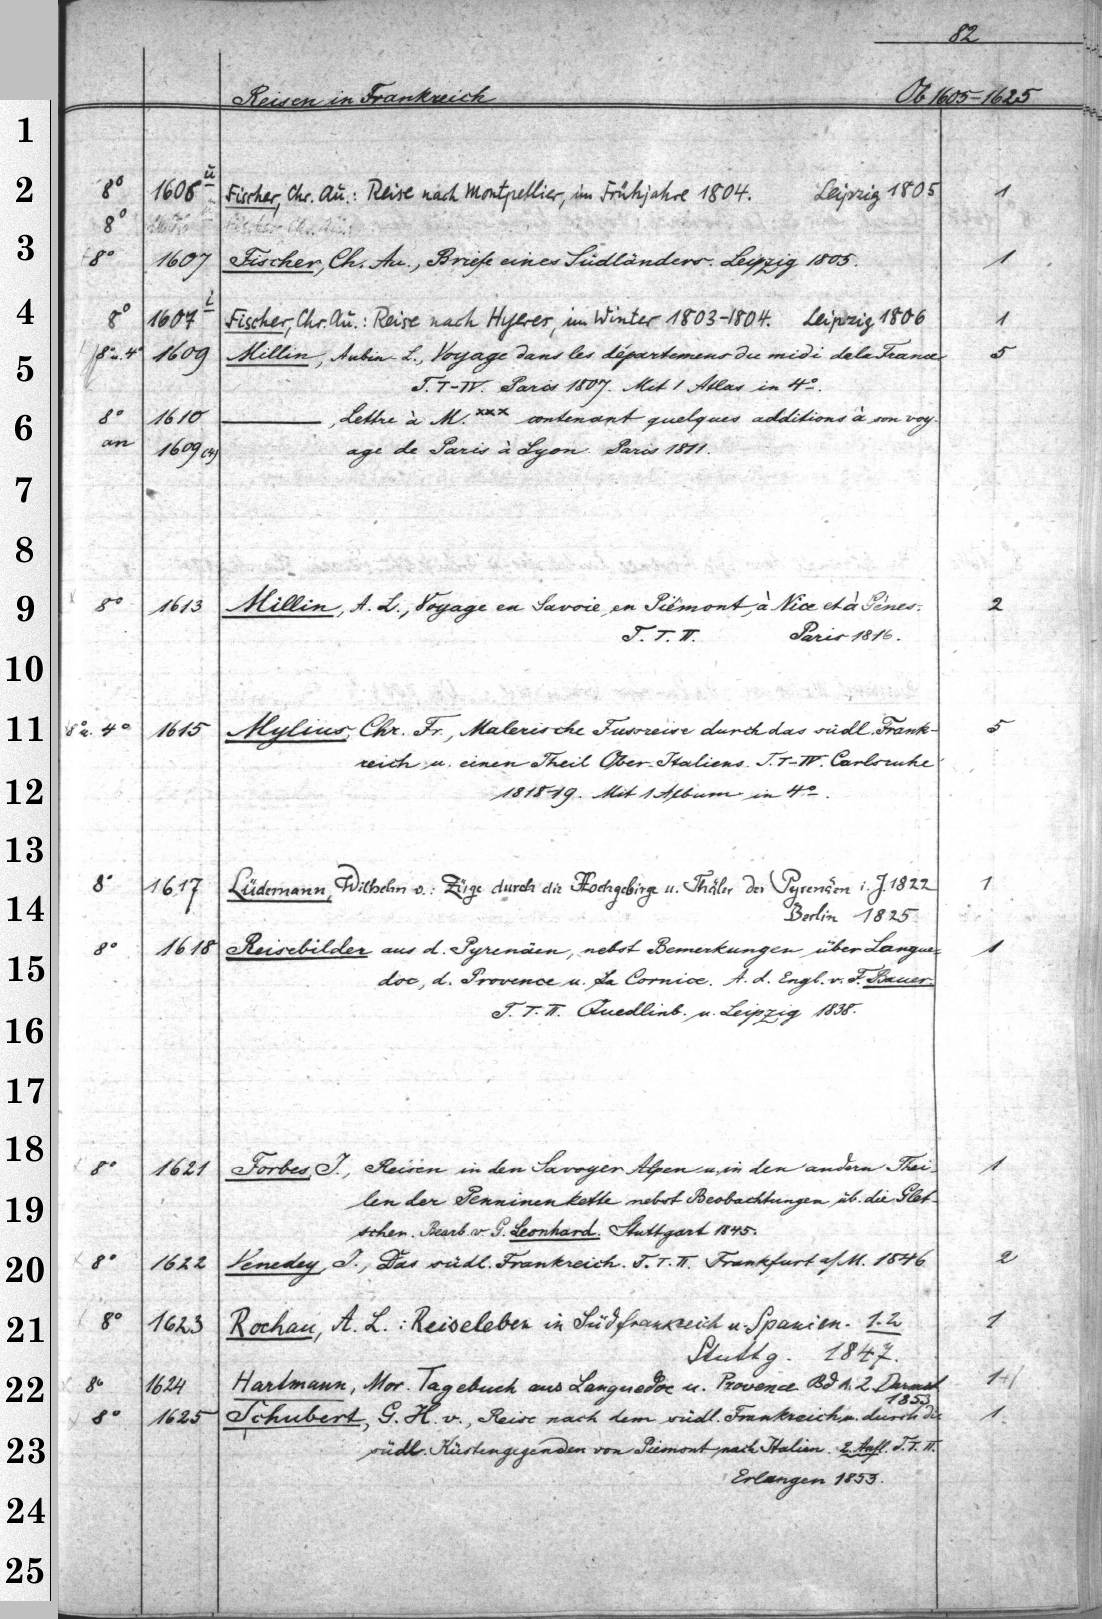 82
Reisen in Frankreich Ob 1605-1625
1
2 8° 1606 ü Fischer, Chr. Aü.: Reise nach Montpellier, im Frühjahre 1804. Leipzig 1805 1
8°
3 8° 1607 Fischer, Ch. Au., Briefe eines Südländers. Leipzig 1805. 1
4 8° 1607 i Fischer, Chr. Aü.: Reise nach Hyeres, im Winter 1803-1804. Leipzig 1806 1
5 8° u. 4° 1609 Millin, Aubin-L., Voyage dans les départemens du midi de la France 5
T. I-IV. Paris 1807. Mit 1 Atlas in 4°.
6 8° 1610 ———, Lettre à M. xxx contenant quelques additions à son voy-
an 1609(4) age de Paris à Lyon. Paris 1811.
7
8
9 8° 1613 Millin, A. L., Voyage en Savoie, en Piémont, à Nice et à Gènes. 2
T. I. II. Paris 1816.
10
11 8° u. 4° 1615 Mylius, Chr. Fr., Malerische Fussreise durch das südl. Frank- 5
reich u. einen Theil Ober-Italiens. T. I-IV. Carlsruhe
12 1818-19. Mit 1 Album in 4°.
13
14 8° 1617 Lüdemann, Wilhelm v.: Züge durch die Hochgebirge u. Thäler der Pyrenäen i. J. 1822 1
Berlin 1825
15 8° 1618 Reisebilder aus d. Pyrenäen, nebst Bemerkungen über Langue- 1
doc, d. Provence u. La Cornice. A. d. Engl. v. F. Bauer.
16 T. I. II. Quedlinb. u. Leipzig 1838.
17
18 8° 1621 Forbes, J., Reisen in den Savoyer Alpen u. in den andern Thei- 1
19 len der Penninenkette nebst Beobachtungen üb. die Glet-
scher. Bearb. v. G. Leonhard. Stuttgart 1845.
20 8° 1622 Venedey, J., Das südl. Frankreich. T. I. II. Frankfurt a/M. 1846 2
21 8° 1623 Rochau, A. L.: Reiseleben in Südfrankreich u. Spanien. 1.2 1
Stuttg. 1847.
22 8° 1624 Hartmann, Mor. Tagebuch aus Languedoc u. Provence Bd 1. 2. Darmst 1
1853
8° 1625 Schubert, G. H. v., Reise nach dem südl. Frankreich u. durch die 1.
23 südl. Küstengegenden von Piemont nach Italien. 2. Aufl. T. I. II.
Erlangen 1853.
24
25